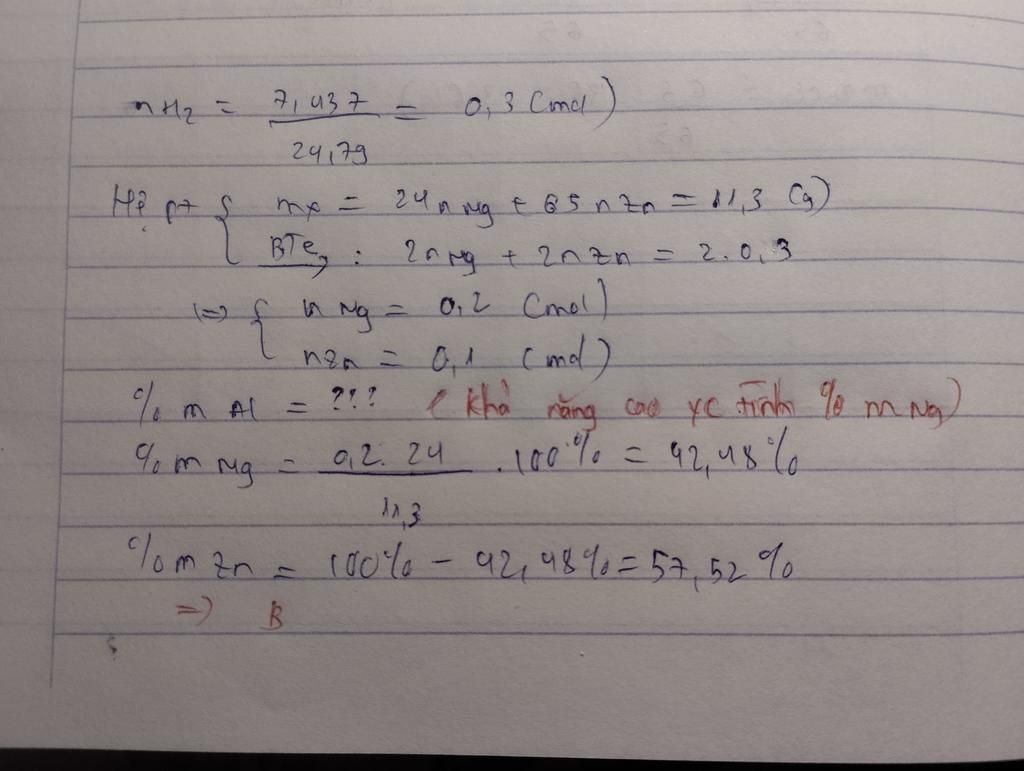 nH₂ = 7,437 / 24,79 = 0,3 (mol)
Hệ pt { mx = 24nMg + 65nZn = 11,3 (g)
BTe: 2nMg + 2nZn = 2.0,3
<=> { nMg = 0,2 (mol)
nZn = 0,1 (mol)
%mAl = ??? (khả năng cao yc tính %mMg)
%mMg = 0,2.24 / 11,3 .100% = 42,48%
%mZn = 100% - 42,48% = 57,52%
=> B